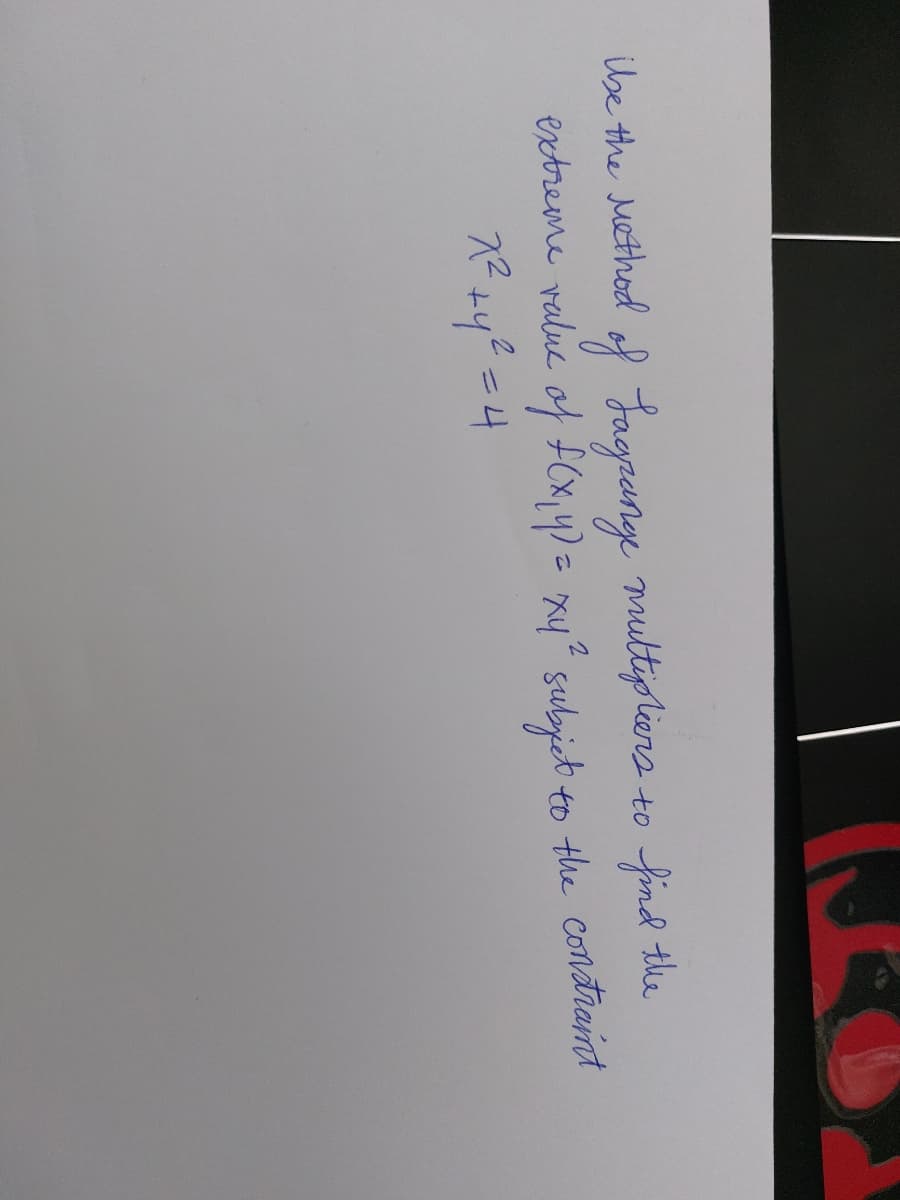 Use the Method of Lagrange multipliers to find the
extreme value of f(x,y) = xy² subject to the constraint
x² + y² = 4